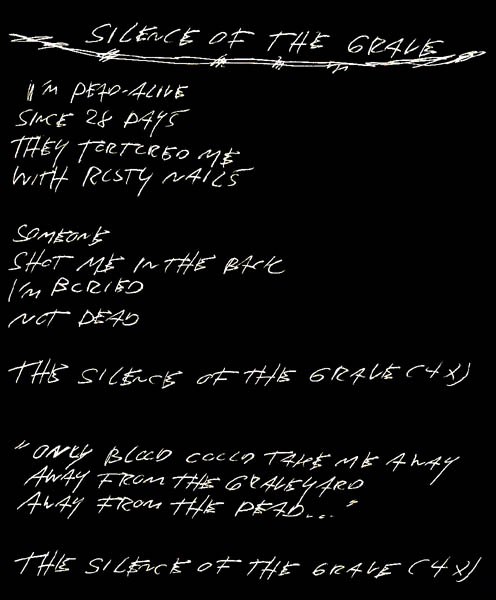 SILENCE OF THE GRAVE
I'M DEAD-ALIVE
SINCE 28 DAYS
THEY TORTURED ME
WITH RUSTY NAILS
SOMEONE
SHOT ME IN THE BACK
I'M BURIED
NOT DEAD
THE SILENCE OF THE GRAVE (4X)
"ONLY BLOOD COULD TAKE ME AWAY
AWAY FROM THE GRAVEYARD
AWAY FROM THE DEAD..."
THE SILENCE OF THE GRAVE (4X)